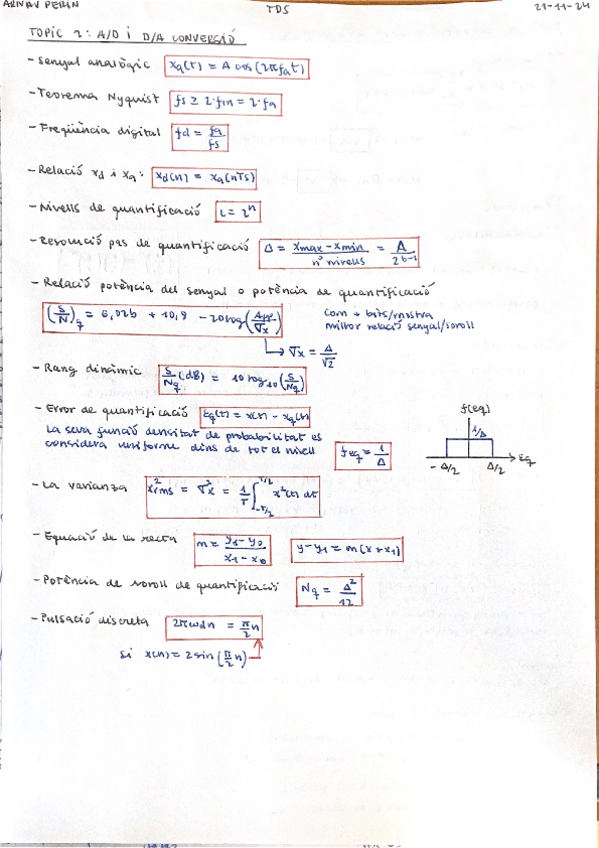 ARNAV PERIN TDS 21-11-24
TOPIC 2: A/D i D/A CONVERSIÓ
- Senyal analògic xa(t) = A cos(2πfat)
- Teorema Nyquist fs ≥ 2·fm = 2·fa
- Freqüència digital fd = fa/fs
- Relació xd i xa: xd(n) = xa(nTs)
- Nivells de quantificació L = 2^n
- Resolució pas de quantificació Δ = (xmax - xmin)/(nº nivells) = A/2^(b-1)
- Relació potència del senyal o potència de quantificació
(S/N)q = 6,02b + 10,8 - 20log(App/σx) Com + bits/mostra
millor relació senyal/soroll
→ σx = A/√2
- Rang dinàmic S/Nq (dB) = 10 log10 (S/Nq)
- Error de quantificació Eq(t) = x(t) - xq(t) f(eq)
La seva funció densitat de probabilitat es
considera uniforme dins de tot el nivell feq = 1/Δ 1/Δ
-Δ/2 Δ/2 Eq
- La varianza x²rms = σ²x = 1/T ∫_{-T/2}^{T/2} x²(t) dt
- Equació de la recta m = (y1 - y0)/(x1 - x0) y - y1 = m(x + x1)
- Potència de soroll de quantificació Nq = Δ²/12
- Pulsació discreta 2πωdn = π/2 n
Si x(n) = 2 sin(π/2 n)